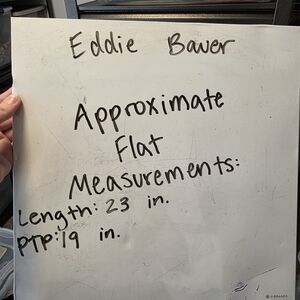 Eddie Bauer
Approximate
Flat
Measurements:
Length: 23 in.
PTP: 19 in.